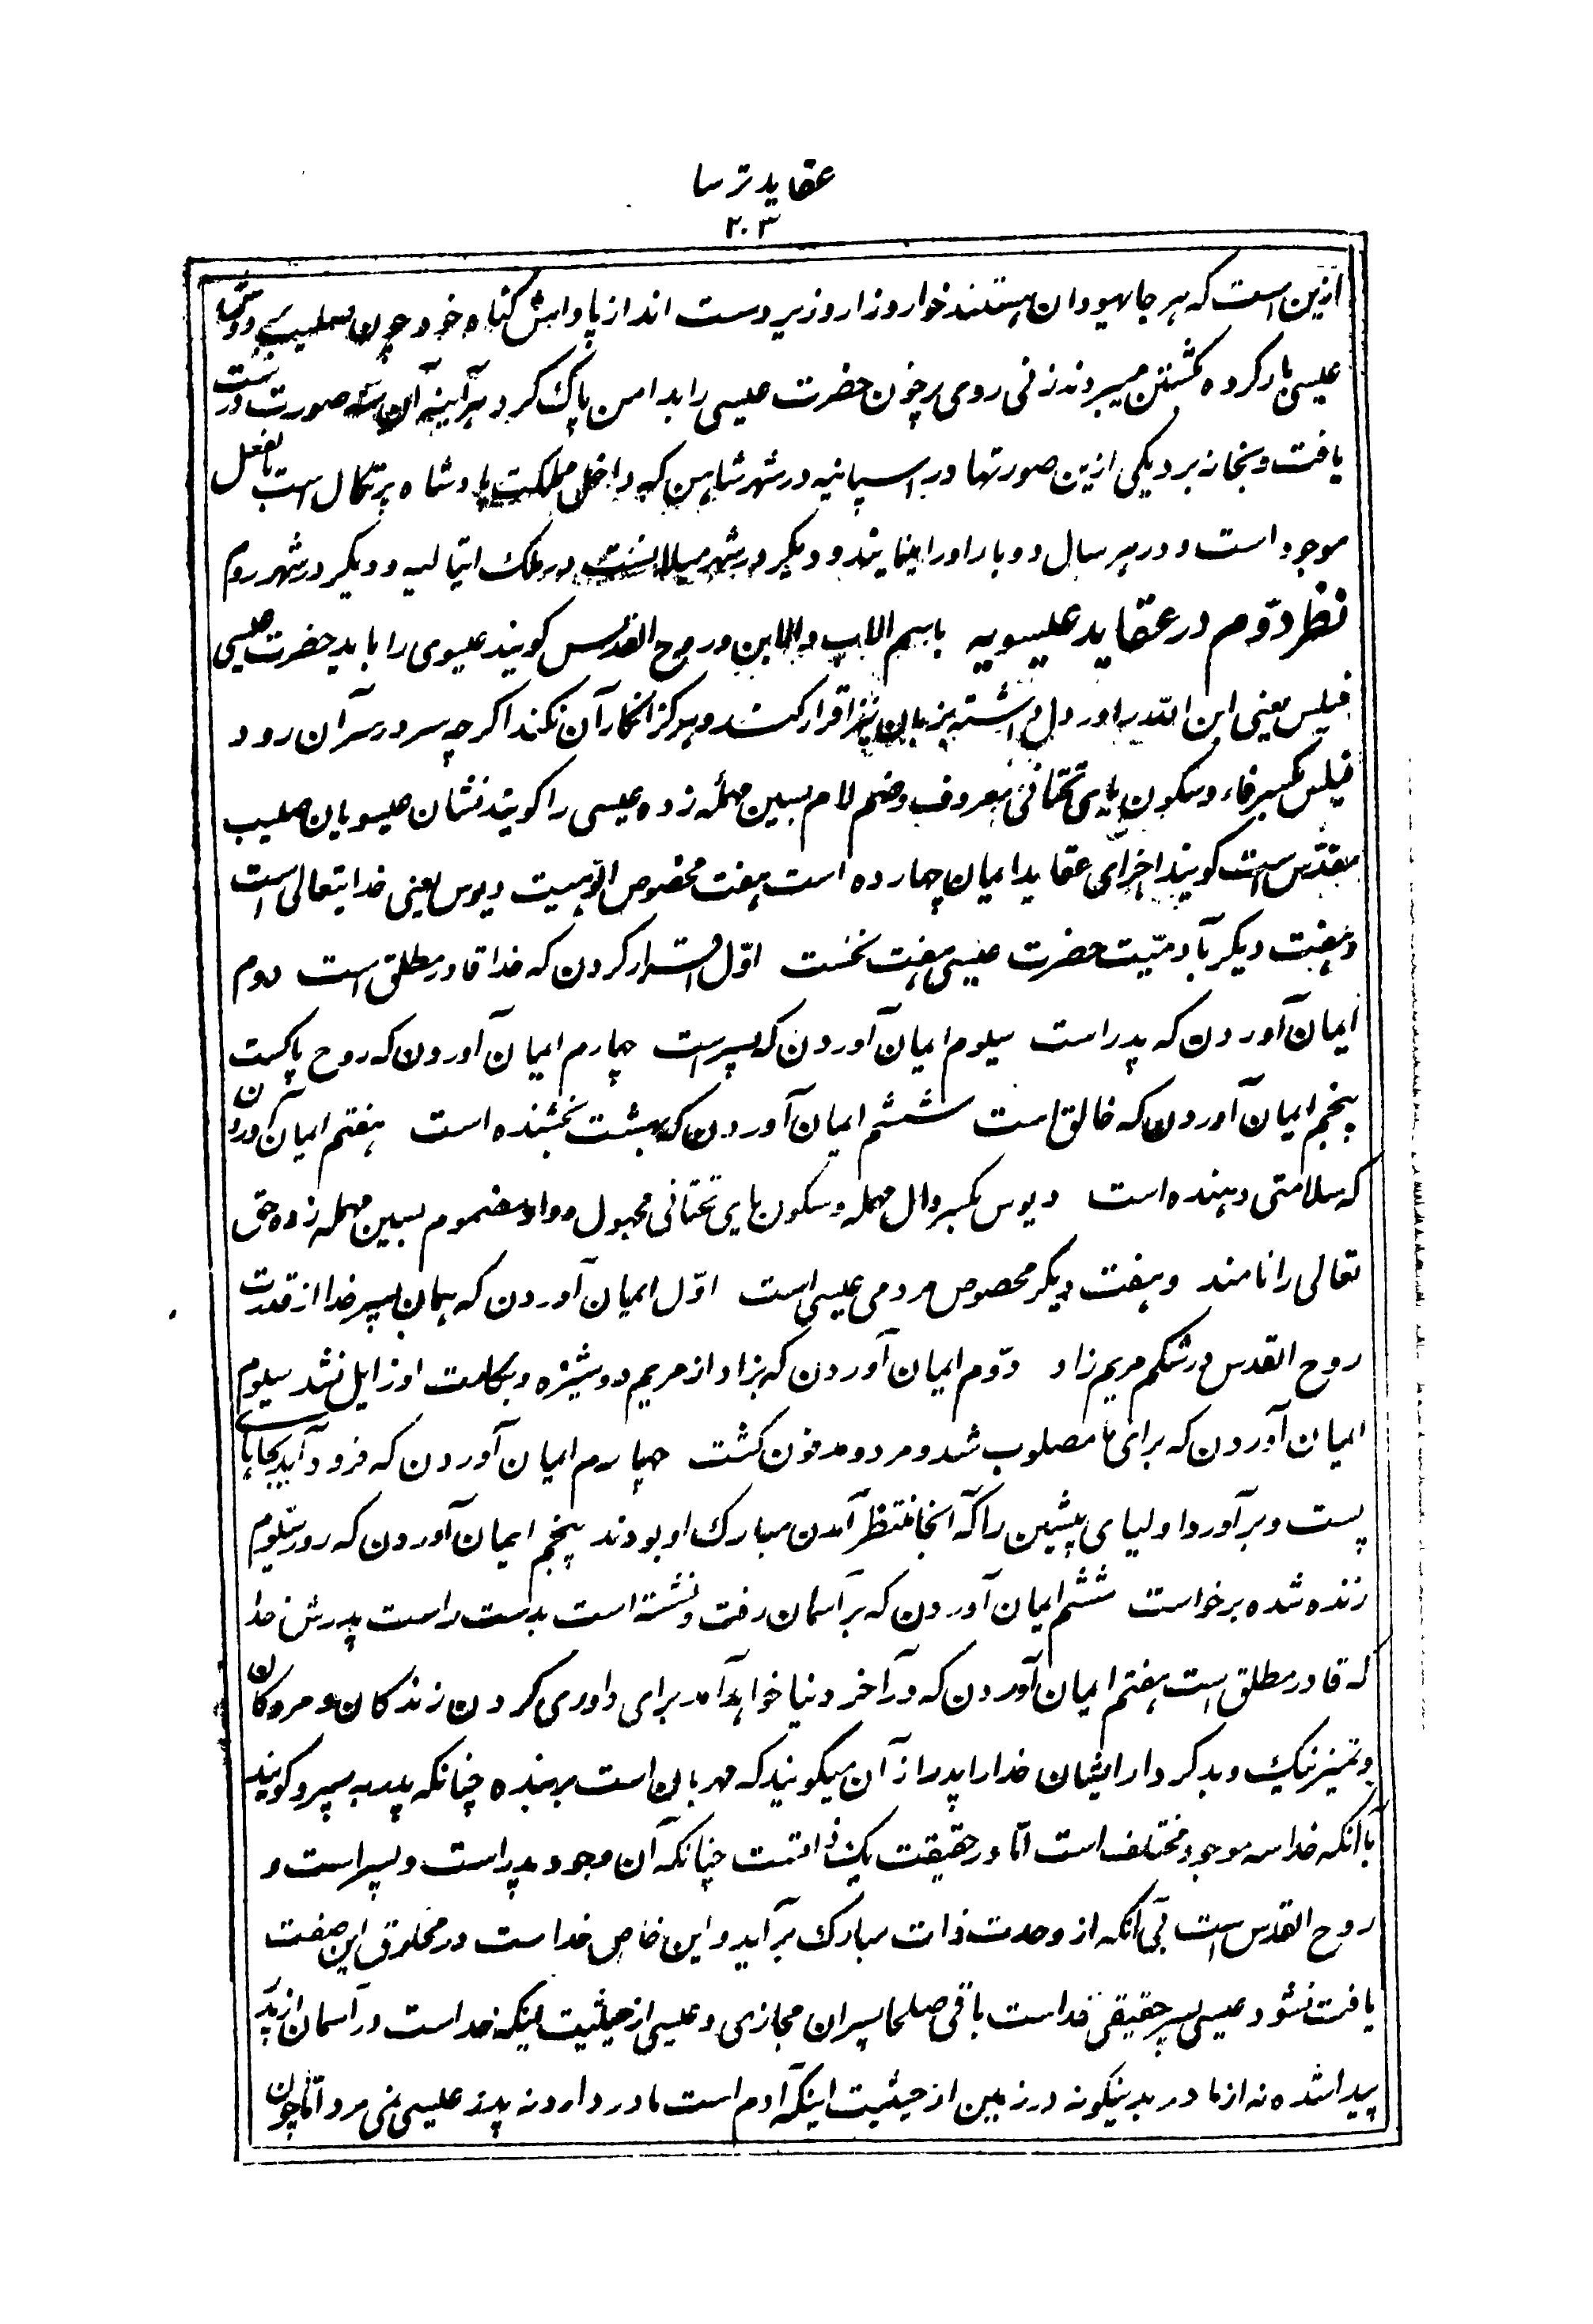 عقاید ترسا
۲۰۳
ازین است که هر جا یهودان هستند خوار و زار و زیردست اند از پاداش گناه خود چون صلیب بدوش
عیسی بار کرده کشتن میبردند زنی روی پرخون حضرت عیسی را بدامن پاک کرد هرآینه آن سه صورت درست
یافت و بخانه برد یکی ازین صورتها در اسپانیه در شهر شاهن که داخل مملکت پادشاه پرتکال است بالفعل
موجود است و در هر سال دو بار او را مینمایند و دیکر در شهر میلانست در ملک ایتالیه و دیکر در شهر روم
نظر دوّم در عقاید عیسویه باسم الاب والابن و روح القدس کویند عیسوی را باید حضرت عیسی
فیلس یعنی ابن الله را در دل داشته بزبان نیز اقرار کند و هرکز انکار آن نکند اکرچه سر در سر آن رود
فیلس بکسر فاء و سکون یای تحتانی معروف و ضم لام بسین مهمله زده عیسی را کویند نشان عیسویان صلیب
مقدّس است کویند اجزای عقاید ایمان چهارده است هفت مخصوص الوهیت دیوس یعنی خدایتعالی است
و هفت دیکر بآدمیّت حضرت عیسی هفت نخست اوّل اقرار کردن که خدا قادر مطلق است دوم
ایمان آوردن که پدر است سیلوم ایمان آوردن که پسر است چهارم ایمان آوردن که روح پاکست
پنجم ایمان آوردن که خالق است ششم ایمان آوردن که بهشت بخشنده است هفتم ایمان آوردن
که سلامتی دهنده است دیوس بکسر دال مهمله و سکون یای تحتانی مجهول و واو مضموم بسین مهمله زده حق
تعالی را نامند و هفت دیکر مخصوص مردمی عیسی است اوّل ایمان آوردن که همان پسر خدا از قدرت
روح القدس در شکم مریم زاد دوّم ایمان آوردن که بزاد از مریم دوشیزه و بکارت او زایل نشد سیلوم
ایمان آوردن که برای ما مصلوب شد و مرد و مدفون کشت چهارم ایمان آوردن که فرود آید بجاهای
پست و برآورد اولیای پیشین را که آنجا منتظر آمدن مبارک او بودند پنجم ایمان آوردن که روز سیلوم
زنده شده برخواست ششم ایمان آوردن که بر آسمان رفت و نشسته است بدست راست پدرش خدا
که قادر مطلق است هفتم ایمان آوردن که در آخر دنیا خواهد آمد برای داوری کردن زندکان و مردکان
و تمیز نیک و بد کردار ایشان خدا را پدر از آن میکویند که مهربان است بر بنده چنانکه پدر به پسر و کویند
با آنکه خدا سه موجود مختلف است امّا در حقیقت یک ذاتست چنانکه آن وجود پدر است و پسر است و
روح القدس است بی آنکه از وحدت ذات مبارک برآید و این خاص خداست در مخلوق این صفت
یافت نشود عیسی پسر حقیقی خداست باقی صلحا پسران مجازی و عیسی از حیثیت اینکه خداست در آسمان از پدر
پیدا شده نه از مادر بدینکونه در زمین از حیثیت اینکه آدم است مادر دارد نه پدر عیسی نمی مرد امّا چون